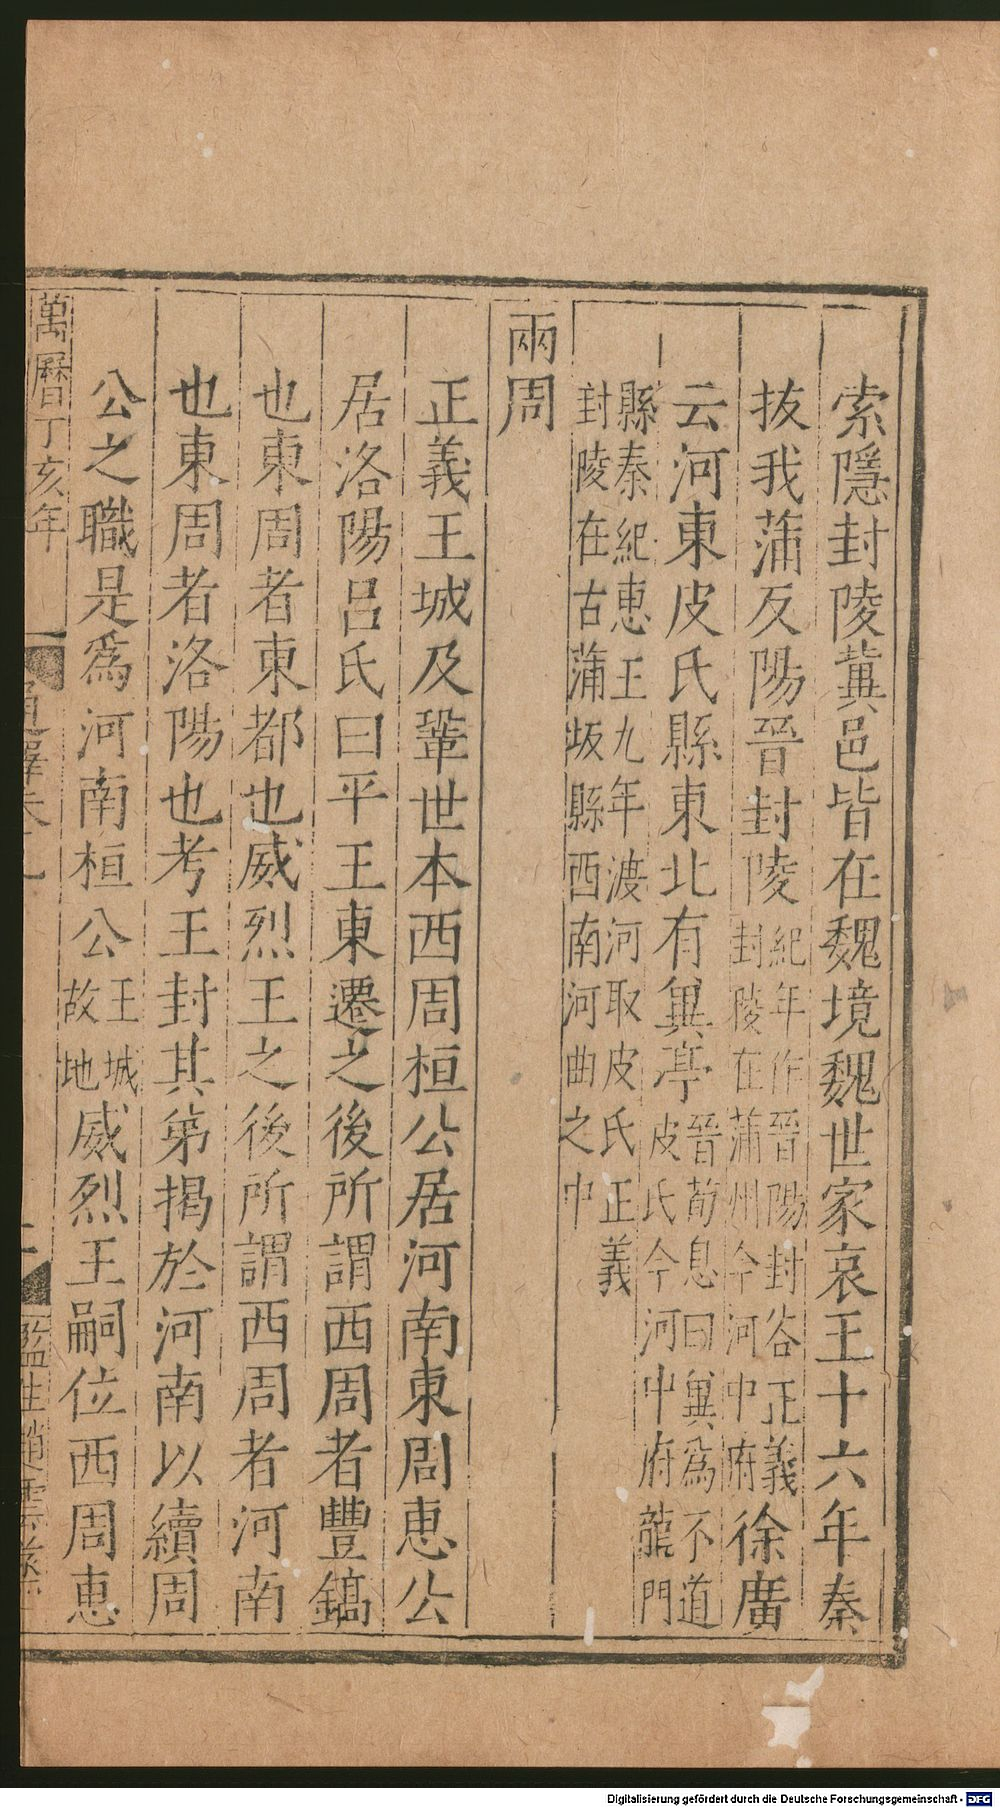 索隱封陵冀邑皆在魏境魏世家哀王十六年秦
拔我蒲反陽晉封陵紀年作晉陽封谷正義封陵在蒲州今河中府徐廣
云河東皮氏縣東北有冀亭晉荀息曰冀爲不道皮氏今河中府龍門
縣秦紀惠王九年渡河取皮氏正義
封陵在古蒲坂縣西南河曲之中
兩周
正義王城及鞏世本西周桓公居河南東周惠公
居洛陽呂氏曰平王東遷之後所謂西周者豐鎬
也東周者東都也威烈王之後所謂西周者河南
也東周者洛陽也考王封其弟揭於河南以續周
公之職是爲河南桓公王城故地威烈王嗣位西周惠
萬曆丁亥年
通釋卷九
監生趙
Digitalisierung gefördert durch die Deutsche Forschungsgemeinschaft - DFG